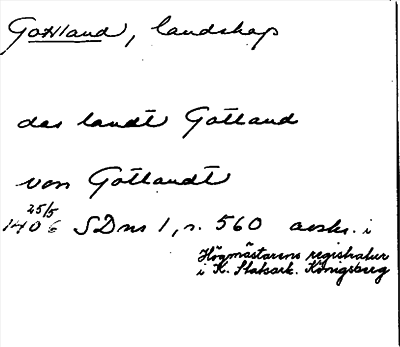 Gottland, landskap
das landt Gotland
von Gotlandt
25/5
1406 SDns 1, s. 560 avskr. i
Högmästarens registratur
i K. Statsark. Königsberg